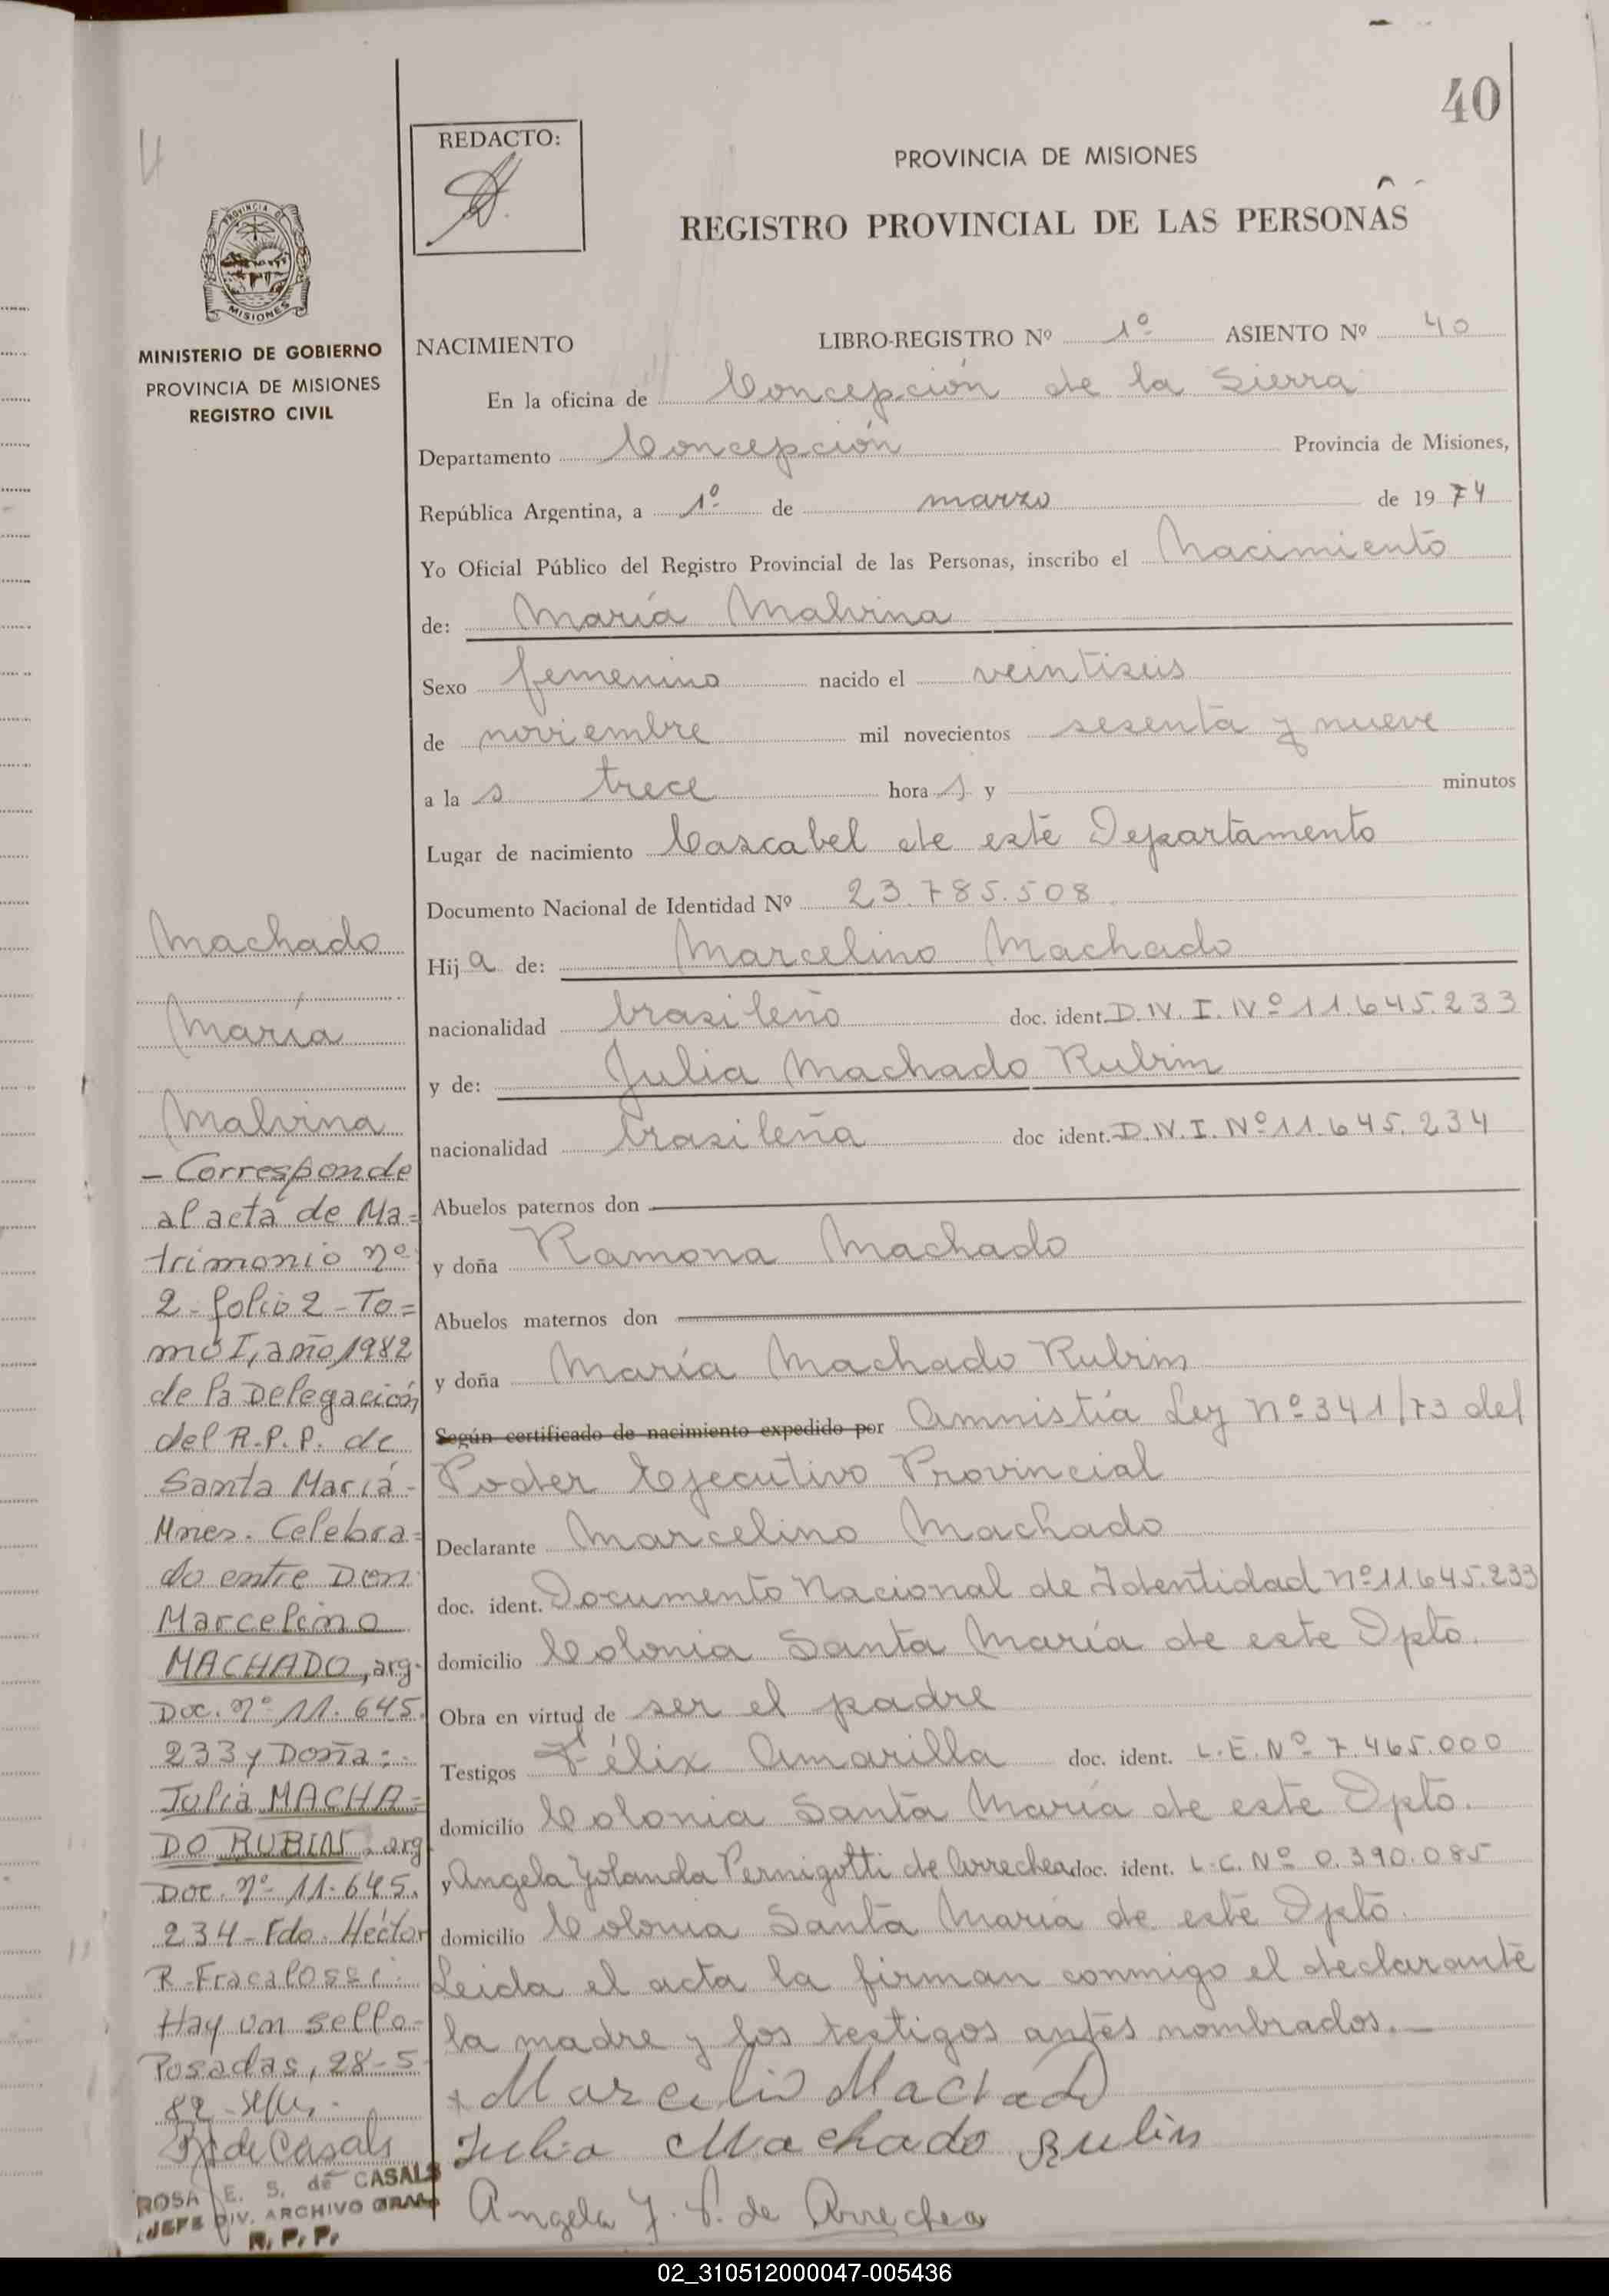 40
REDACTO:
PROVINCIA DE MISIONES
REGISTRO PROVINCIAL DE LAS PERSONAS
PROVINCIA DE
MISIONES
MINISTERIO DE GOBIERNO
PROVINCIA DE MISIONES
REGISTRO CIVIL
NACIMIENTO LIBRO-REGISTRO Nº 1º ASIENTO Nº 40
En la oficina de Concepción de la Sierra
Departamento Concepción Provincia de Misiones,
República Argentina, a 1º de marzo de 1974
Yo Oficial Público del Registro Provincial de las Personas, inscribo el Nacimiento
de: María Malvina
Sexo femenino nacido el veintiseis
de noviembre mil novecientos sesenta y nueve
a la s trece hora s y minutos
Lugar de nacimiento Cascabel de este Departamento
Documento Nacional de Identidad Nº 23.785.508
Hija de: Marcelino Machado
nacionalidad brasileño doc. ident. D.N.I. Nº 11.645.233
y de: Julia Machado Rubim
nacionalidad brasileña doc ident. D.N.I. Nº 11.645.234
Abuelos paternos don
y doña Ramona Machado
Abuelos maternos don
y doña María Machado Rubim
Según certificado de nacimiento expedido por Amnistía Ley Nº 341/73 del
Poder Ejecutivo Provincial
Declarante Marcelino Machado
doc. ident. Documento Nacional de Identidad Nº 11.645.233
domicilio Colonia Santa María de este Dpto.
Obra en virtud de ser el padre
Testigos Félix Amarilla doc. ident. L.E. Nº 7.465.000
domicilio Colonia Santa María de este Dpto.
y Angela Yolanda Pernigotti de Arrechea doc. ident. L.C. Nº 0.390.085
domicilio Colonia Santa María de este Dpto.
Leida el acta la firman conmigo el declarante
la madre y los testigos antes nombrados.
Marcelio Machado
Julia Machado Rubin
Angela Y. P. de Arrechea
Machado
María
Malvina
- Corresponde
al acta de Ma=
trimonio nº
2 - folio 2 - To=
mo I, año 1982
de la Delegación
del R.P.P. de
Santa María -
Mnes. Celebra=
do entre Don
Marcelino
MACHADO, arg.
Doc. nº 11.645.
233 y Doña:
Julia MACHA=
DO RUBIN, arg
Doc. nº 11.645.
234 - Fdo. Héctor
R. Fracalossi.
Hay un sello-
Posadas, 28-5-
82
R de Casals
ROSA E. S. de CASALS
JEFE DIV. ARCHIVO GRAL
R. P. P.
02_310512000047-005436